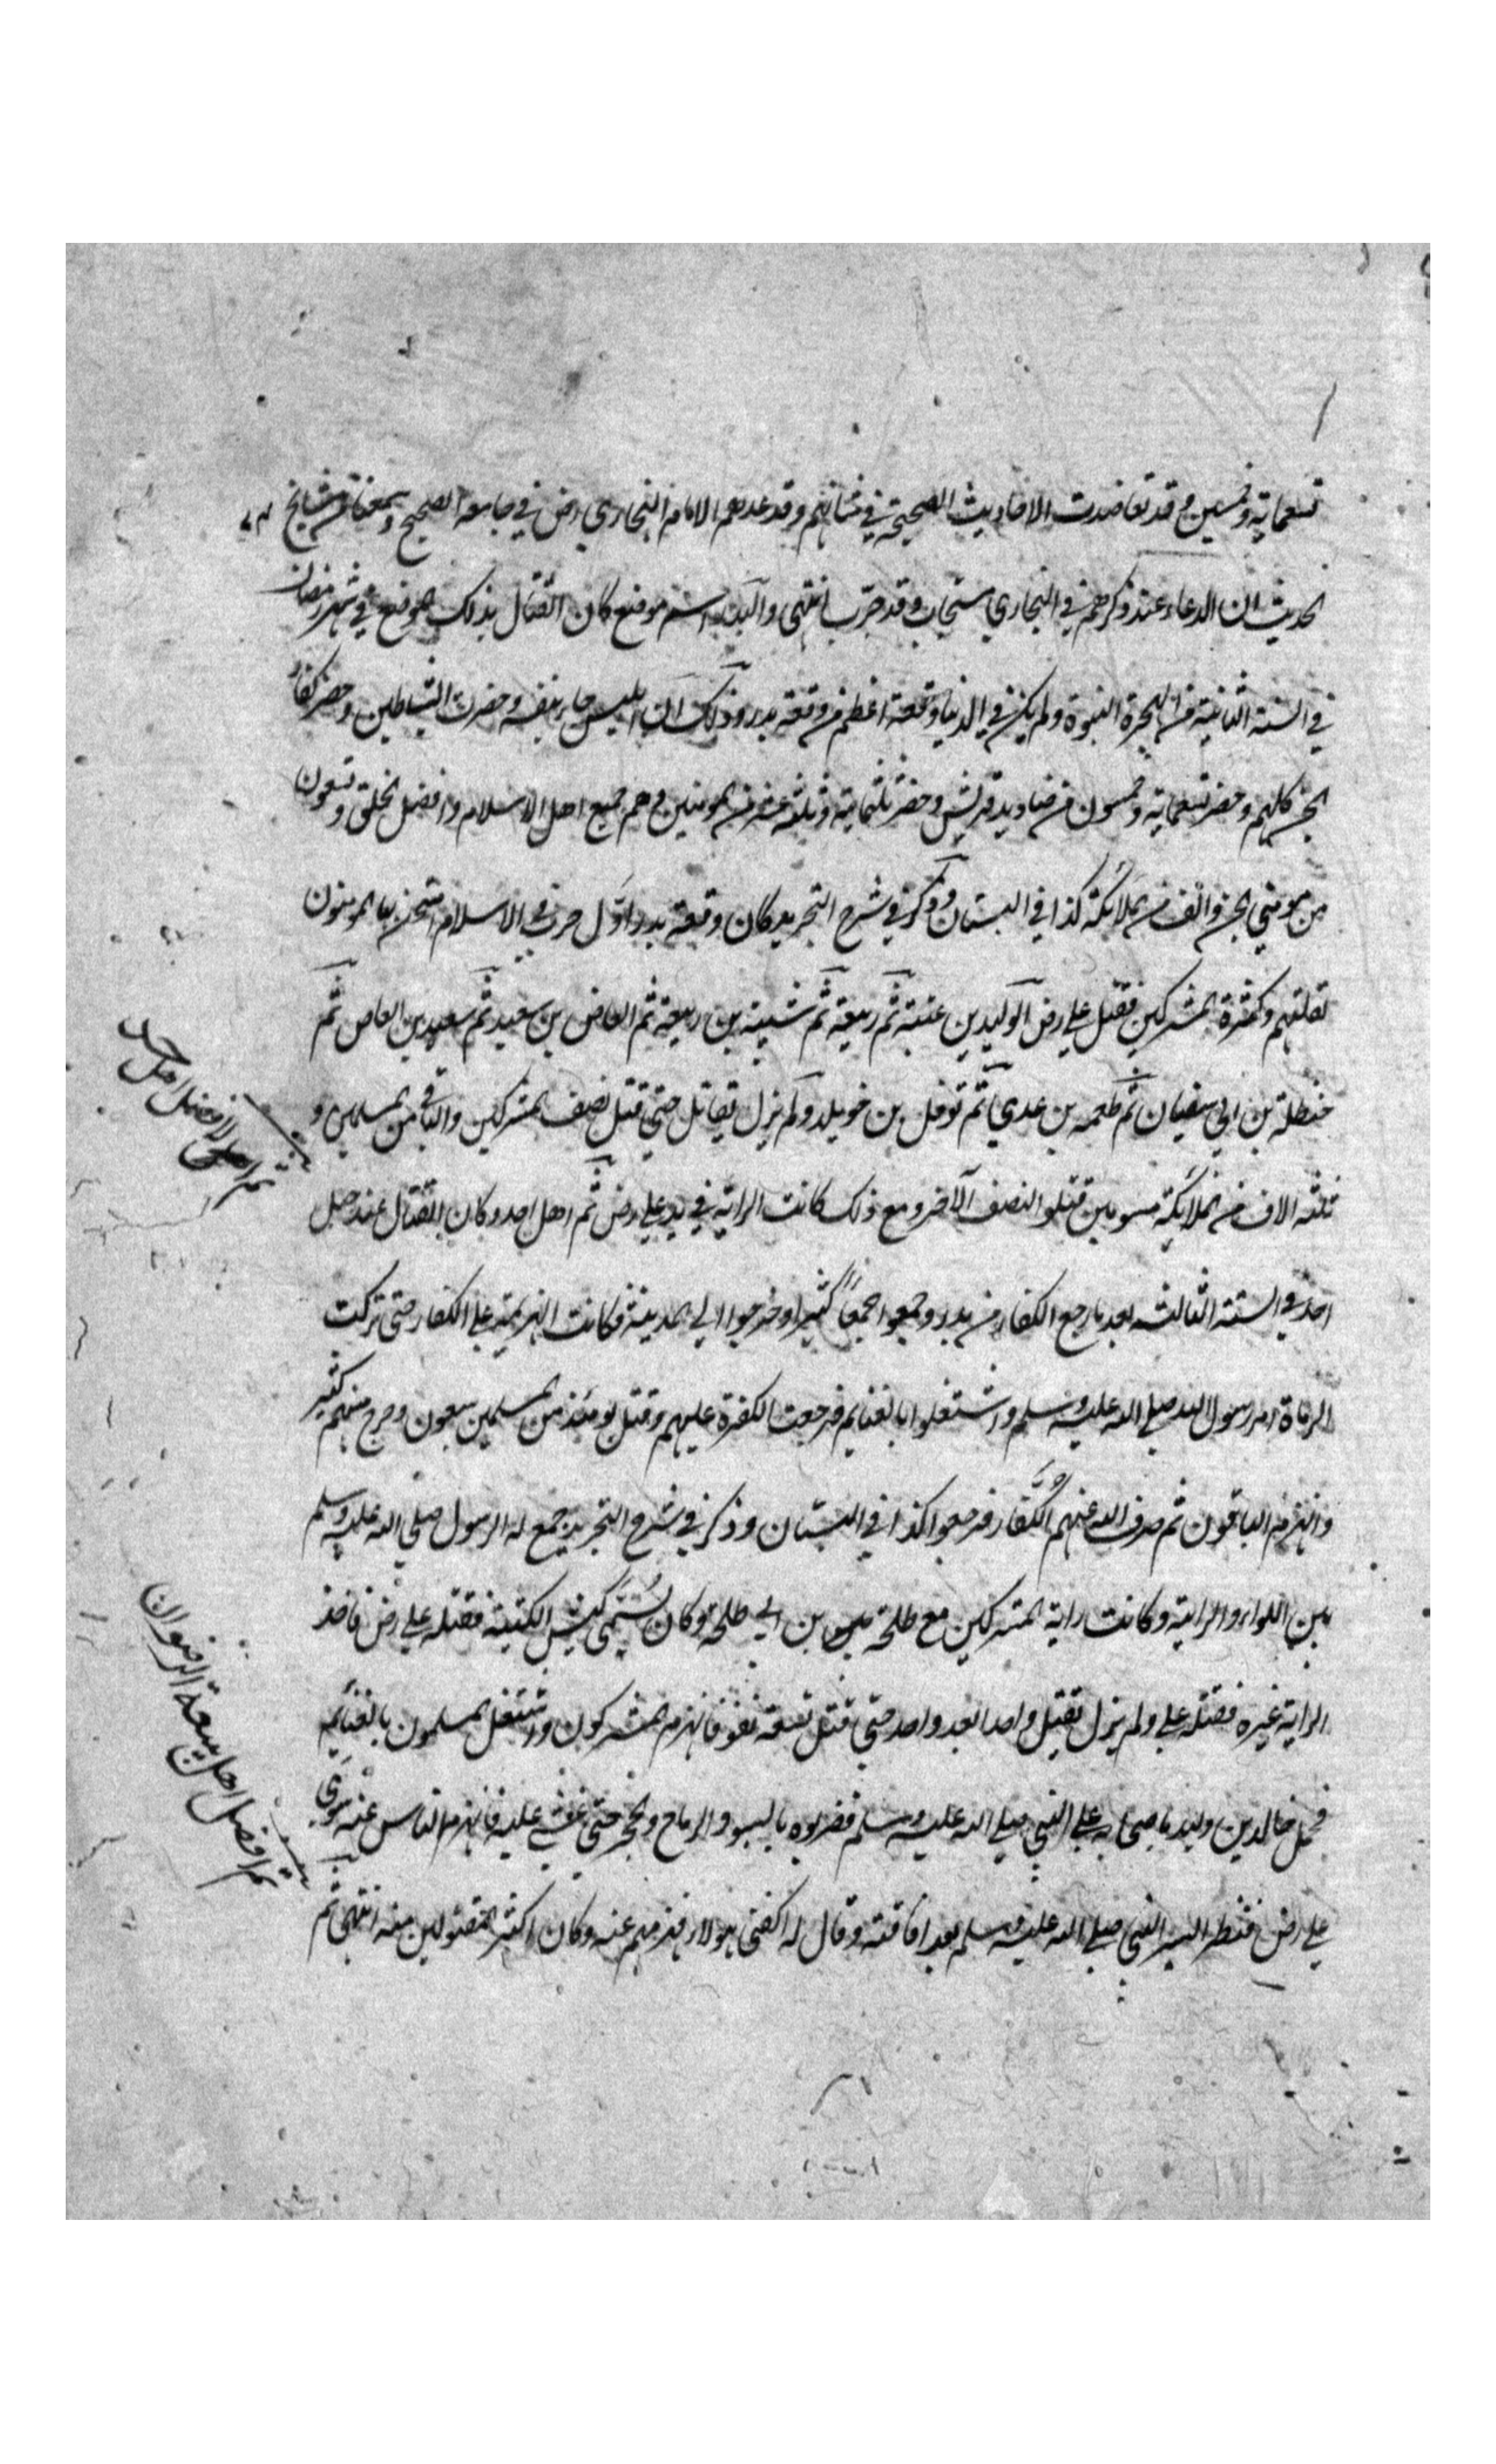 تسعماية وخمسين وقد تعاضدت الاحاديث الصحيحة في شانهم وقد عدهم الامام البخاري رض في جامعه الصحيح وسمعنا من مشايخ
الحديث ان الدعاء عند ذكرهم في البخاري مستجاب وقد جرّب انتهى والبدر اسم موضع كان القتال بذلك الموضع في شهر رمضان
في السنة الثانية من الهجرة النبوة ولم يكن في الدنيا وقعة اعظم من وقعة بدر وذلك ان ابليس جا بنفسه وحضرت الشياطين وحضر كفار
الجن كلهم وحضر تسعماية وخمسون من صناديد قريش وحضر ثلثماية وثلثه عشر من المومنين وهم جميع اهل الاسلام وافضل الخلق وسبعون
من مومني الجن والف من الملائكة كذا في البستان وذكر في شرح التجريد كان وقعة بدر اوّل حرب في الاسلام امتحن بها المومنون
لقلتهم وكثرة المشركين فقتل علي رض الوليد بن عتبة ثم ربيعة ثم شيبة بن ربيعة ثم العاص بن سعيد ثم سعيد بن العاص ثم
حنظلة بن ابي سفيان ثم طعمه بن عدي ثم نوفل بن خويلد ولم يزل يقاتل حتى قتل نصف المشركين والباقي من المسلمين و
ثلثه الاف من الملائكة مسومين قتلو النصف الآخر ومع ذلك كانت الراية في يد علي رض ثم اهل احد وكان القتال عند جبل
احد في السنة الثالثه بعد ما رجع الكفار من بدر وجمعوا جمعًا كثيرا وخرجوا الي المدينة فكانت الهزيمة علي الكفار حتى تركت
الرماة امر رسول الله صلي الله عليه وسلم واشتغلوا بالغنايم فرجعت الكفرة عليهم وقتل يومئذ من المسلمين سبعون وجرح منهم كثير
وانهزم الباقون ثم صرف الله عنهم الكفار فرجعوا كذا في البستان وذكر في شرح التجريد جمع له الرسول صلي الله عليه وسلم
بين اللواء والراية وكانت راية المشركين مع طلحة بن ابي طلحة وكان يُسَمّى كبش الكتيبة فقتله علي رض فاخذ
الراية غيره فقتله علي ولم يزل يقتل واحدا بعد واحد حتى قتل تسعة نفر فانهزم المشركون واشتغل المسلمون بالغنائم
فحمل خالد بن وليد باصحابه علي النبي صلي الله عليه وسلم فضربوه بالسيو والرماح والحجر حتى غشي عليه فانهزم الناس عنه سوي
علي رض فنظر اليه النبي صلي الله عليه وسلم بعد افاقته وقال له اكفني هولاء فهزمهم عنه وكان اكثر المقتولين منه انتهى ثم
افضل اهل احد
ثم افضل اهل بيعة الرضوان